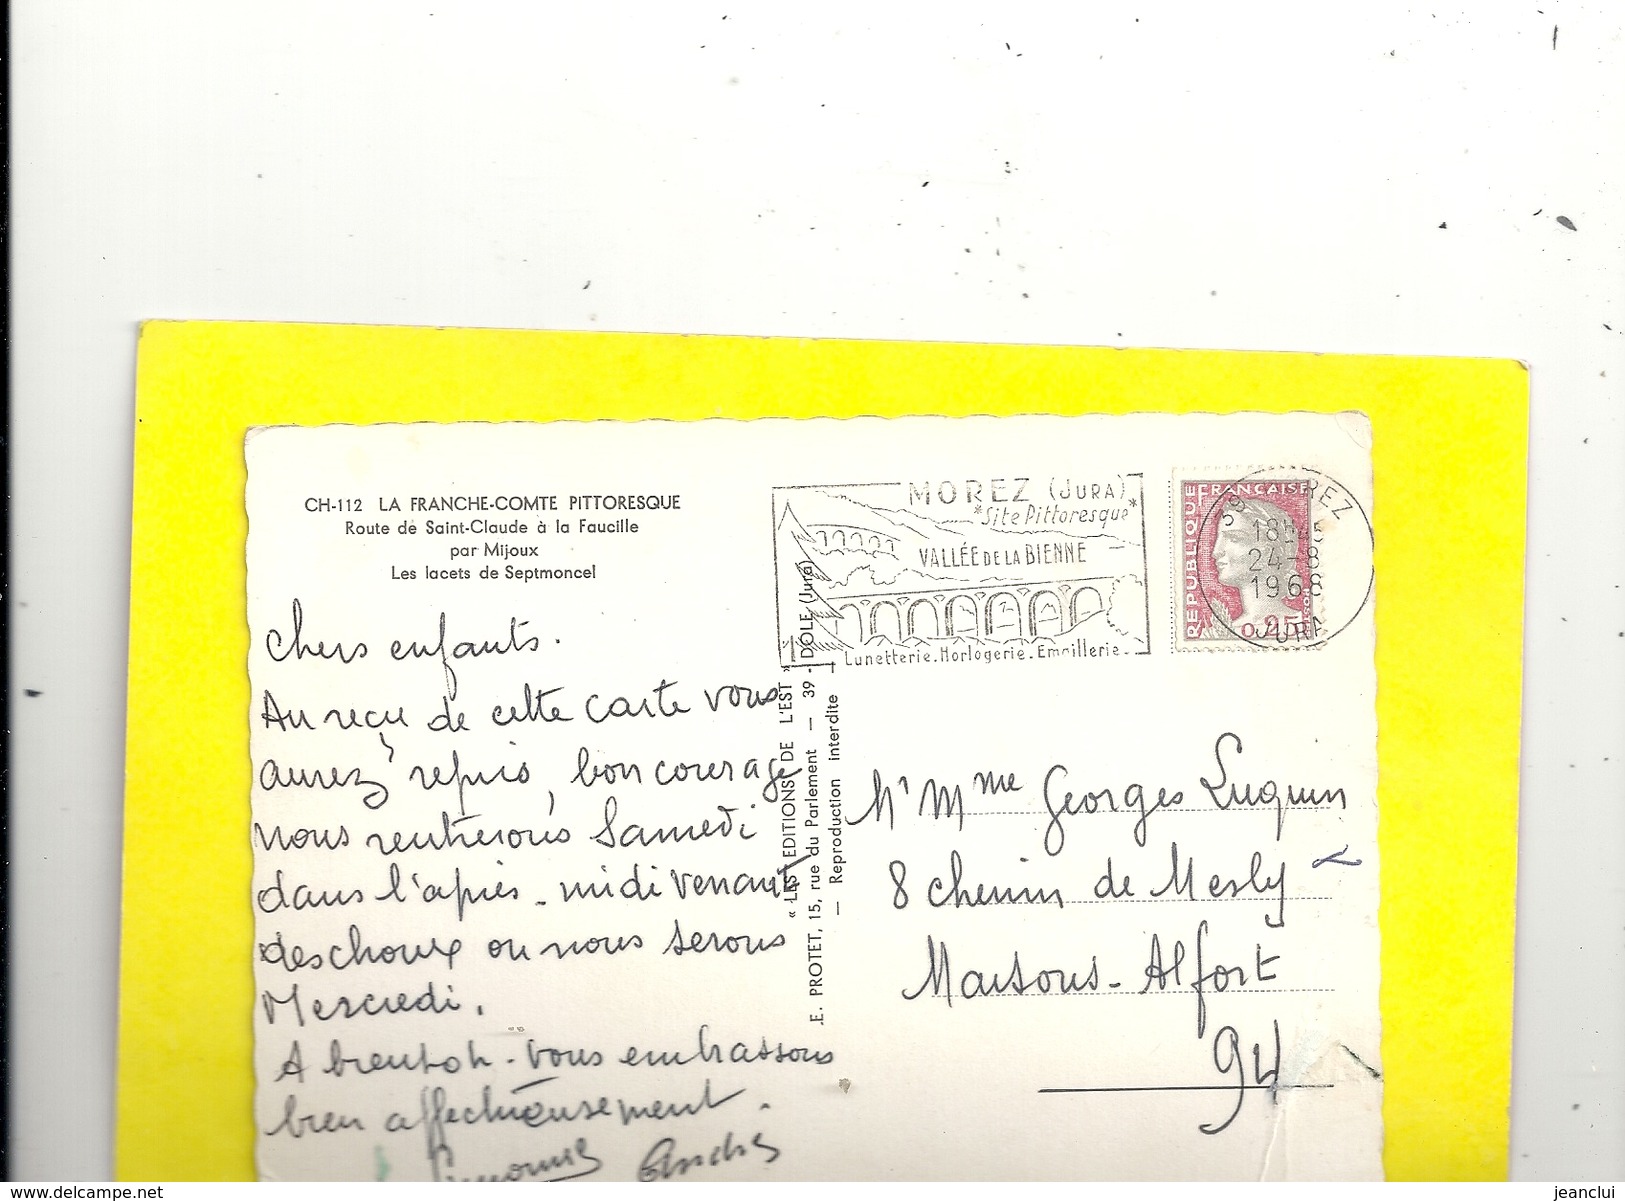 CH-112 LA FRANCHE-COMTE PITTORESQUE
Route de Saint-Claude à la Faucille
par Mijoux
Les lacets de Septmoncel
Chers enfants.
Au reçu de cette carte vous
aurez repris, bon courage
nous rentrerons Samedi
dans l'après-midi venant
des choux ou nous serons
Mercredi.
A bientôt. Vous embrassons
bien affectueusement.
Simonne André
« LES EDITIONS DE L'EST »
E. PROTET, 15, rue du Parlement — 39 - DOLE (Jura)
— Reproduction interdite —
MOREZ (JURA)
*Site Pittoresque*
VALLÉE DE LA BIENNE
Lunetterie. Horlogerie. Emaillerie.
REPUBLIQUE FRANÇAISE
0,25
39 MOREZ
18H45
24-8
1968
JURA
Mr Mme Georges Luquin
8 chemin de Mesly
Maisons-Alfort
94
jeanclui